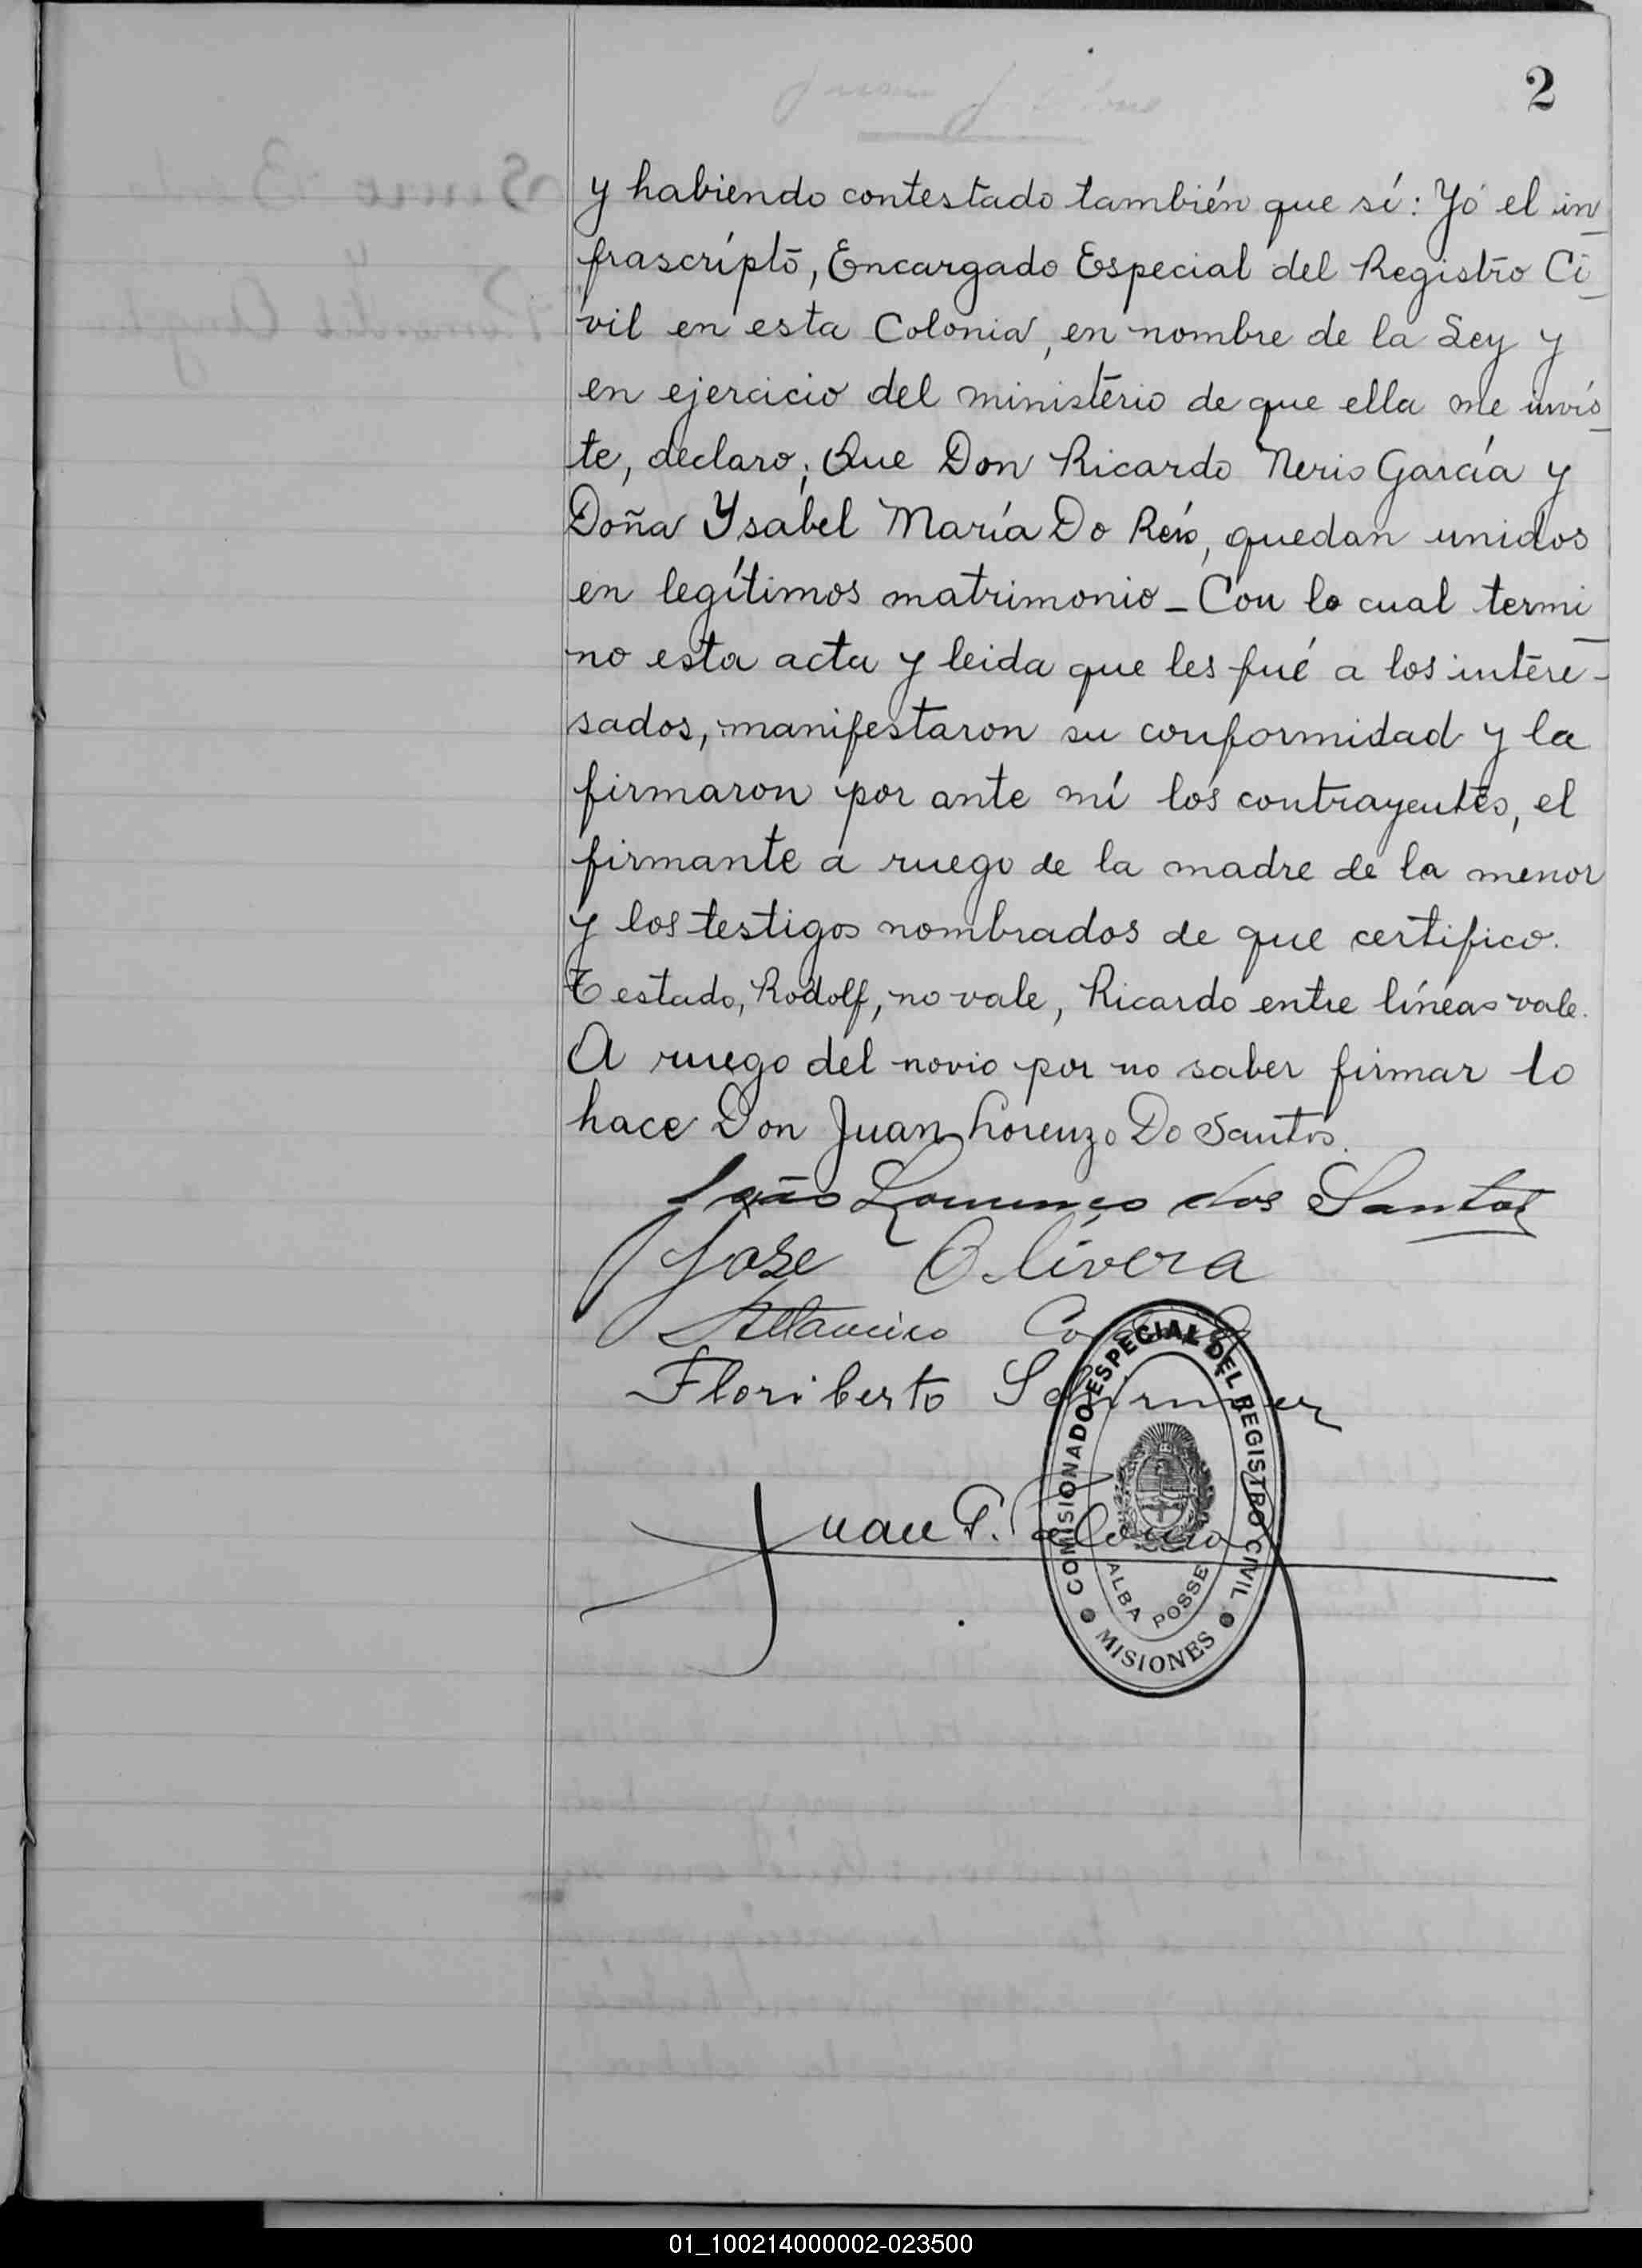 2
y habiendo contestado también que sí: Yó el in
frascriptó, Encargado Especial del Registro Ci
vil en esta Colonia, en nombre de la Ley y
en ejercicio del ministerio de que ella me invis
te, declaro; Que Don Ricardo Neris García y
Doña Ysabel María Do Reis, quedan unidos
en legítimos matrimonio_ Con lo cual termi
no esta acta y leida que les fué a los intere-
sados, manifestaron su conformidad y la
firmaron por ante mí los contrayentes, el
firmante a ruego de la madre de la menor
y los testigos nombrados de que certifico.
Testado, Rodolf, no vale, Ricardo entre líneas vale.
A ruego del novio por no saber firmar lo
hace Don Juan Lorenzo Do Santos.
João Lourenço dos Santos
Jose Olivera
Floriberto Schirmer
Juan P.
COMISIONADO ESPECIAL DEL REGISTRO CIVIL
ALBA POSSE
MISIONES
01_100214000002-023500